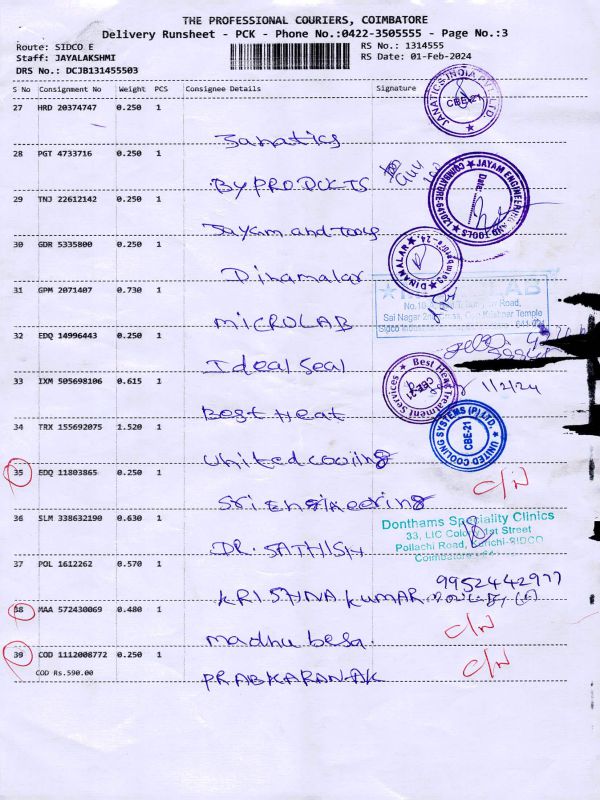 THE PROFESSIONAL COURIERS, COIMBATORE
Delivery Runsheet - PCK - Phone No.:0422-3505555 - Page No.:3
Route: SIDCO E
RS No.: 1314555
Staff: JAYALAKSHMI
RS Date: 01-Feb-2024
DRS No.: DCJB131455503
S No Consignment No Weight PCS Consignee Details Signature
27 HRD 20374747 0.250 1
Janatics
JANATICS INDIA PVT LTD
CBE-21
28 PGT 4733716 0.250 1
BY PRODUCTS
JAYAM ENGINEERING AND TOOLS
Date:
29 TNJ 22612142 0.250 1
Jayam and tools
30 GDR 5335800 0.250 1
Dinamalar
DINAMALAR
31 GPM 2071407 0.730 1
MICROLAB
LAB
Road,
Sai Nagar
Temple
32 EDQ 14996443 0.250 1
Ideal Seal
33 IXM 505698106 0.615 1
Best Heat
Best Heat Treatment Services
CBE-21
1/2/24
34 TRX 155692075 1.520 1
United cooling
UNITED COOLING SYSTEMS (P) LTD.
CBE-21
35 EDQ 11803865 0.250 1
Sri Engineering
C/N
36 SLM 338632190 0.630 1
DR. SATHISH
Donthams Speciality Clinics
33, LIC Colony 1st Street
Pollachi Road, Kurichi-SIDCO
37 POL 1612262 0.570 1
KRISHNA KUMAR
9952442977
38 MAA 572430069 0.480 1
madhu besa.
C/N
39 COD 1112008772 0.250 1
COD Rs.590.00
PRABKARAN-AK
C/N